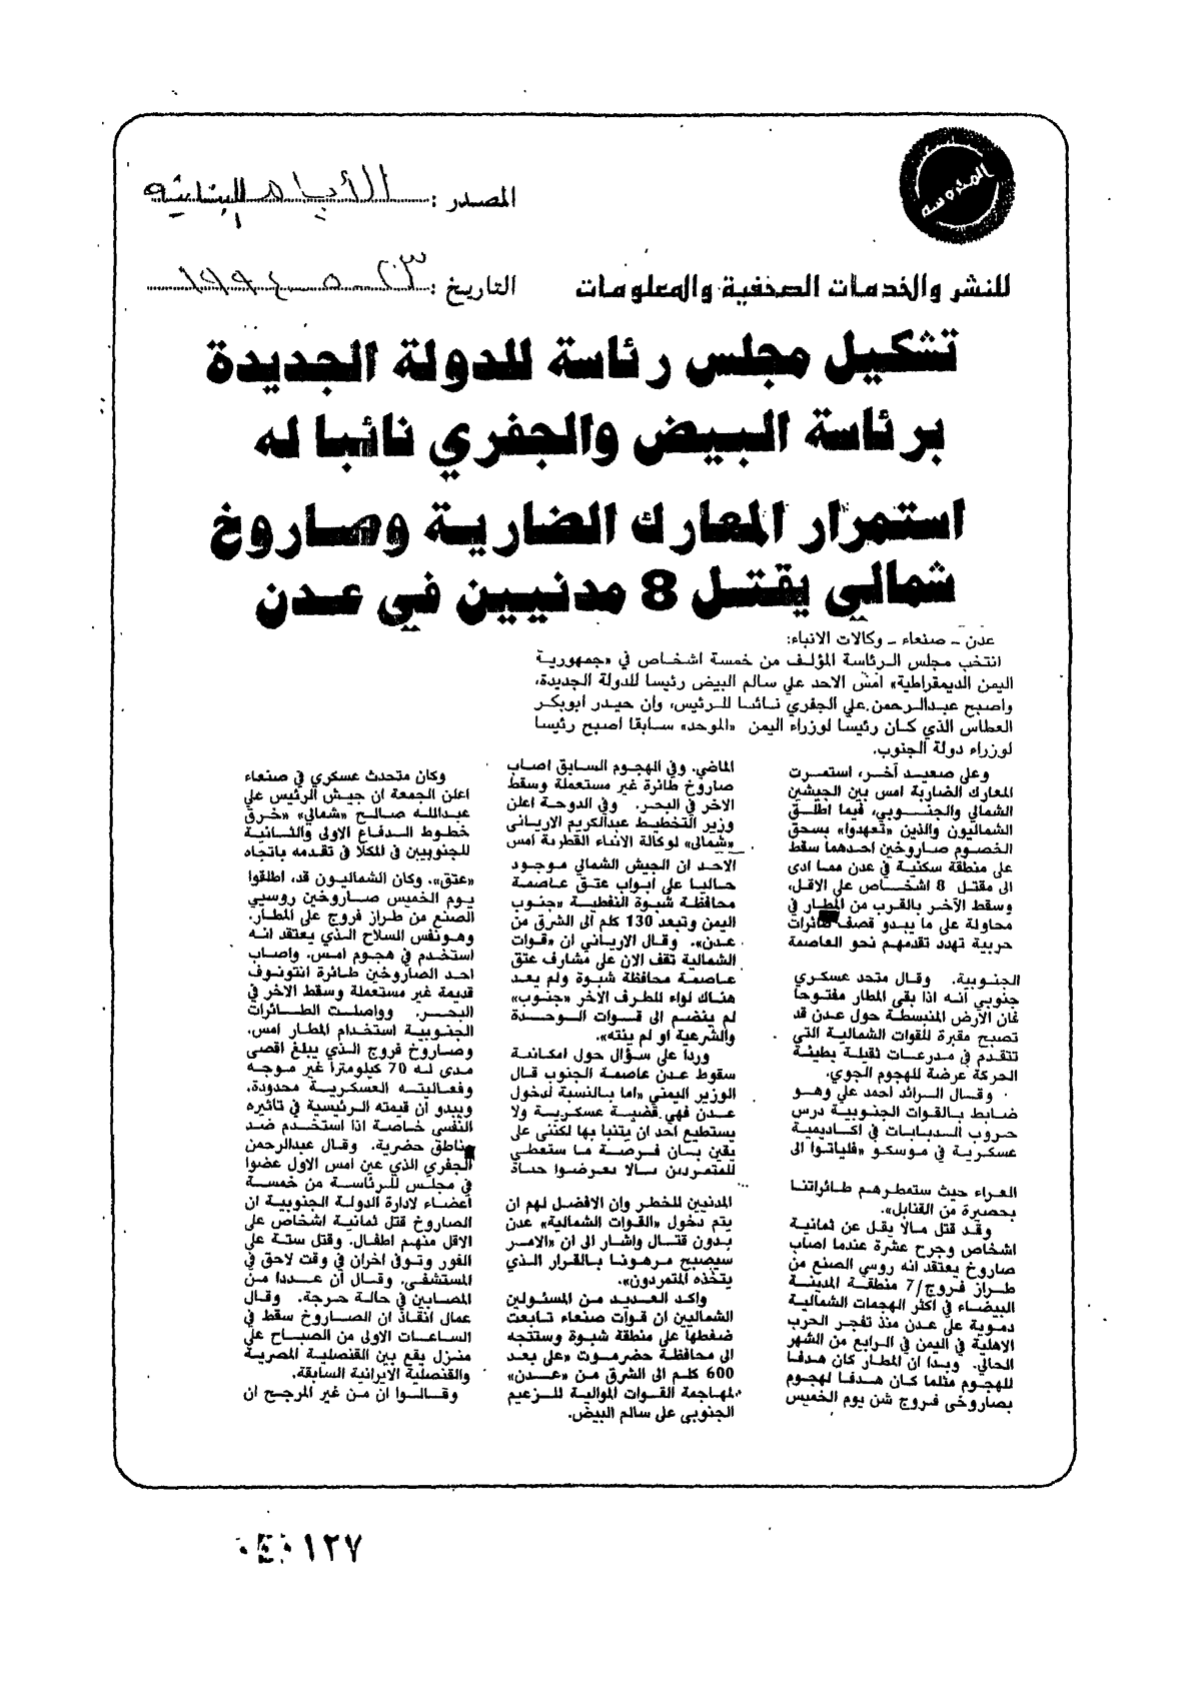 المحروسة
المصدر : الأيام البنانيه
للنشر والخدمات الصحفية والمعلومات
التاريخ : ٢٣ - ٥ - ١٩٩٤
تشكيل مجلس رئاسة للدولة الجديدة
برئاسة البيض والجفري نائبا له
استمرار المعارك الضارية وصاروخ
شمالي يقتل 8 مدنيين في عدن
عدن - صنعاء - وكالات الانباء:
انتخب مجلس الرئاسة المؤلف من خمسة اشخاص في «جمهورية
اليمن الديمقراطية» امس الاحد علي سالم البيض رئيسا للدولة الجديدة،
واصبح عبدالرحمن علي الجفري نائبا للرئيس، وان حيدر ابوبكر
العطاس الذي كان رئيسا لوزراء اليمن «الموحد» سابقا اصبح رئيسا
لوزراء دولة الجنوب.
وعلى صعيد آخر، استمرت
المعارك الضارية امس بين الجيشين
الشمالي والجنوبي، فيما اطلق
الشماليون والذين «تعهدوا» بسحق
الخصوم صاروخين احدهما سقط
على منطقة سكنية في عدن مما ادى
الى مقتل 8 اشخاص على الاقل،
وسقط الآخر بالقرب من المطار في
محاولة على ما يبدو قصف طائرات
حربية تهدد تقدمهم نحو العاصمة
الجنوبية. وقال متحد عسكري
جنوبي أنه اذا بقى المطار مفتوحا
فان الارض المنبسطة حول عدن قد
تصبح مقبرة للقوات الشمالية التي
تتقدم في مدرعات ثقيلة بطيئة
الحركة عرضة للهجوم الجوي.
وقال الرائد احمد علي وهو
ضابط بالقوات الجنوبية درس
حروب الدبابات في اكاديمية
عسكرية في موسكو «فلياتوا الى
العراء حيث ستمطرهم طائراتنا
بحصيرة من القنابل».
وقد قتل مالا يقل عن ثمانية
اشخاص وجرح عشرة عندما اصاب
صاروخ يعتقد انه روسي الصنع من
طراز فروج/7 منطقة المدينة
البيضاء في اكثر الهجمات الشمالية
دموية على عدن منذ تفجر الحرب
الاهلية في اليمن في الرابع من الشهر
الحالي. وبدا ان المطار كان هدفا
للهجوم مثلما كان هدفا لهجوم
بصاروخى فروج شن يوم الخميس
الماضي. وفي الهجوم السابق اصاب
صاروخ طائرة غير مستعملة وسقط
الاخر في البحر. وفي الدوحة اعلن
وزير التخطيط عبدالكريم الارياني
«شمالي» لوكالة الانباء القطرية امس
الاحد ان الجيش الشمالي موجود
حاليا على ابواب عتق عاصمة
محافظة شبوة النفطية «جنوب
اليمن وتبعد 130 كلم الى الشرق من
عدن». وقال الارياني ان «قوات
الشمالية تقف الان على مشارف عتق
عاصمة محافظة شبوة ولم يعد
هناك لواء للطرف الاخر «جنوب»
لم ينضم الى قوات الوحدة
والشرعية او لم ينته».
وردا على سؤال حول امكانية
سقوط عدن عاصمة الجنوب قال
الوزير اليمني «اما بالنسبة لدخول
عدن فهي قضية عسكرية ولا
يستطيع احد ان يتنبا بها لكننى على
يقين بان فرصة ما ستعطى
للمتمردين بالا يعرضوا حياة
المدنيين للخطر وان الافضل لهم ان
يتم دخول «القوات الشمالية» عدن
بدون قتال واشار الى ان «الامر
سيصبح مرهونا بالقرار الذي
يتخذه المتمردون».
واكد العديد من المسئولين
الشماليين ان قوات صنعاء تابعت
ضغطها على منطقة شبوة وستتجه
الى محافظة حضرموت «على بعد
600 كلم الى الشرق من «عدن»
لمهاجمة القوات الموالية للزعيم
الجنوبى على سالم البيض.
وكان متحدث عسكري في صنعاء
اعلن الجمعة ان جيش الرئيس علي
عبدالله صالح «شمالي» «خرق
خطوط الدفاع الاولى والثانية
للجنوبيين في المكلا في تقدمه باتجاه
«عتق». وكان الشماليون قد، اطلقوا
يوم الخميس صاروخين روسيي
الصنع من طراز فروج على المطار.
وهونفس السلاح الذي يعتقد انه
استخدم في هجوم امس. واصاب
احد الصاروخين طائرة انتونوف
قديمة غير مستعملة وسقط الاخر في
البحر. وواصلت الطائرات
الجنوبية استخدام المطار امس.
وصاروخ فروج الذي يبلغ اقصى
مدى له 70 كيلومترا غير موجه
وفعاليته العسكرية محدودة.
ويبدو أن قيمته الرئيسية في تاثيره
النفسى خاصة اذا استخدم ضد
مناطق حضرية. وقال عبدالرحمن
الجفري الذي عين امس الاول عضوا
في مجلس للرئاسة من خمسة
أعضاء لادارة الدولة الجنوبية ان
الصاروخ قتل ثمانية اشخاص على
الاقل منهم اطفال. وقتل ستة على
الفور وتوفى اخران في وقت لاحق في
المستشفى. وقال أن عددا من
المصابين في حالة حرجة. وقال
عمال انقاذ ان الصاروخ سقط في
الساعات الاولى من الصباح على
منزل يقع بين القنصلية المصرية
والقنصلية الايرانية السابقة.
وقالوا ان من غير المرجح ان
١٢٧